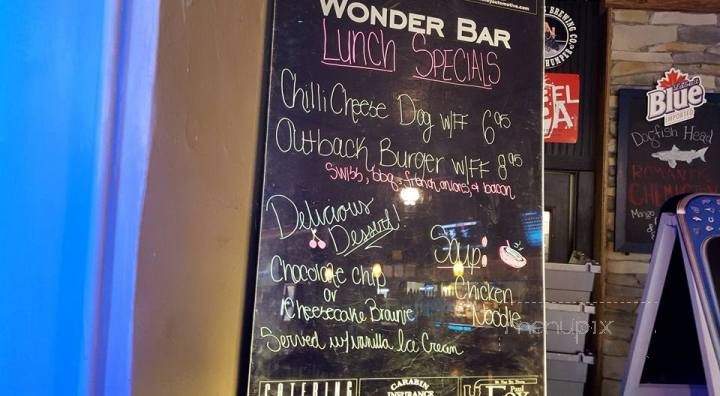 WONDER BAR
Lunch SPECIALS
Chilli Cheese Dog w/FF 6.95
Outback Burger w/FF 8.95
Swiss, bbq, french onions, & bacon
Delicious
Dessert!
Soup:
Chocolate chip
or
Cheesecake Brownie
Chicken
Noodle
Served w/vanilla Ice Cream
CATERING
CARABIN
INSURANCE
Paul
Fox
BREWING CO.
Blue
IMPORTED
Dogfish Head
Mango
menupix